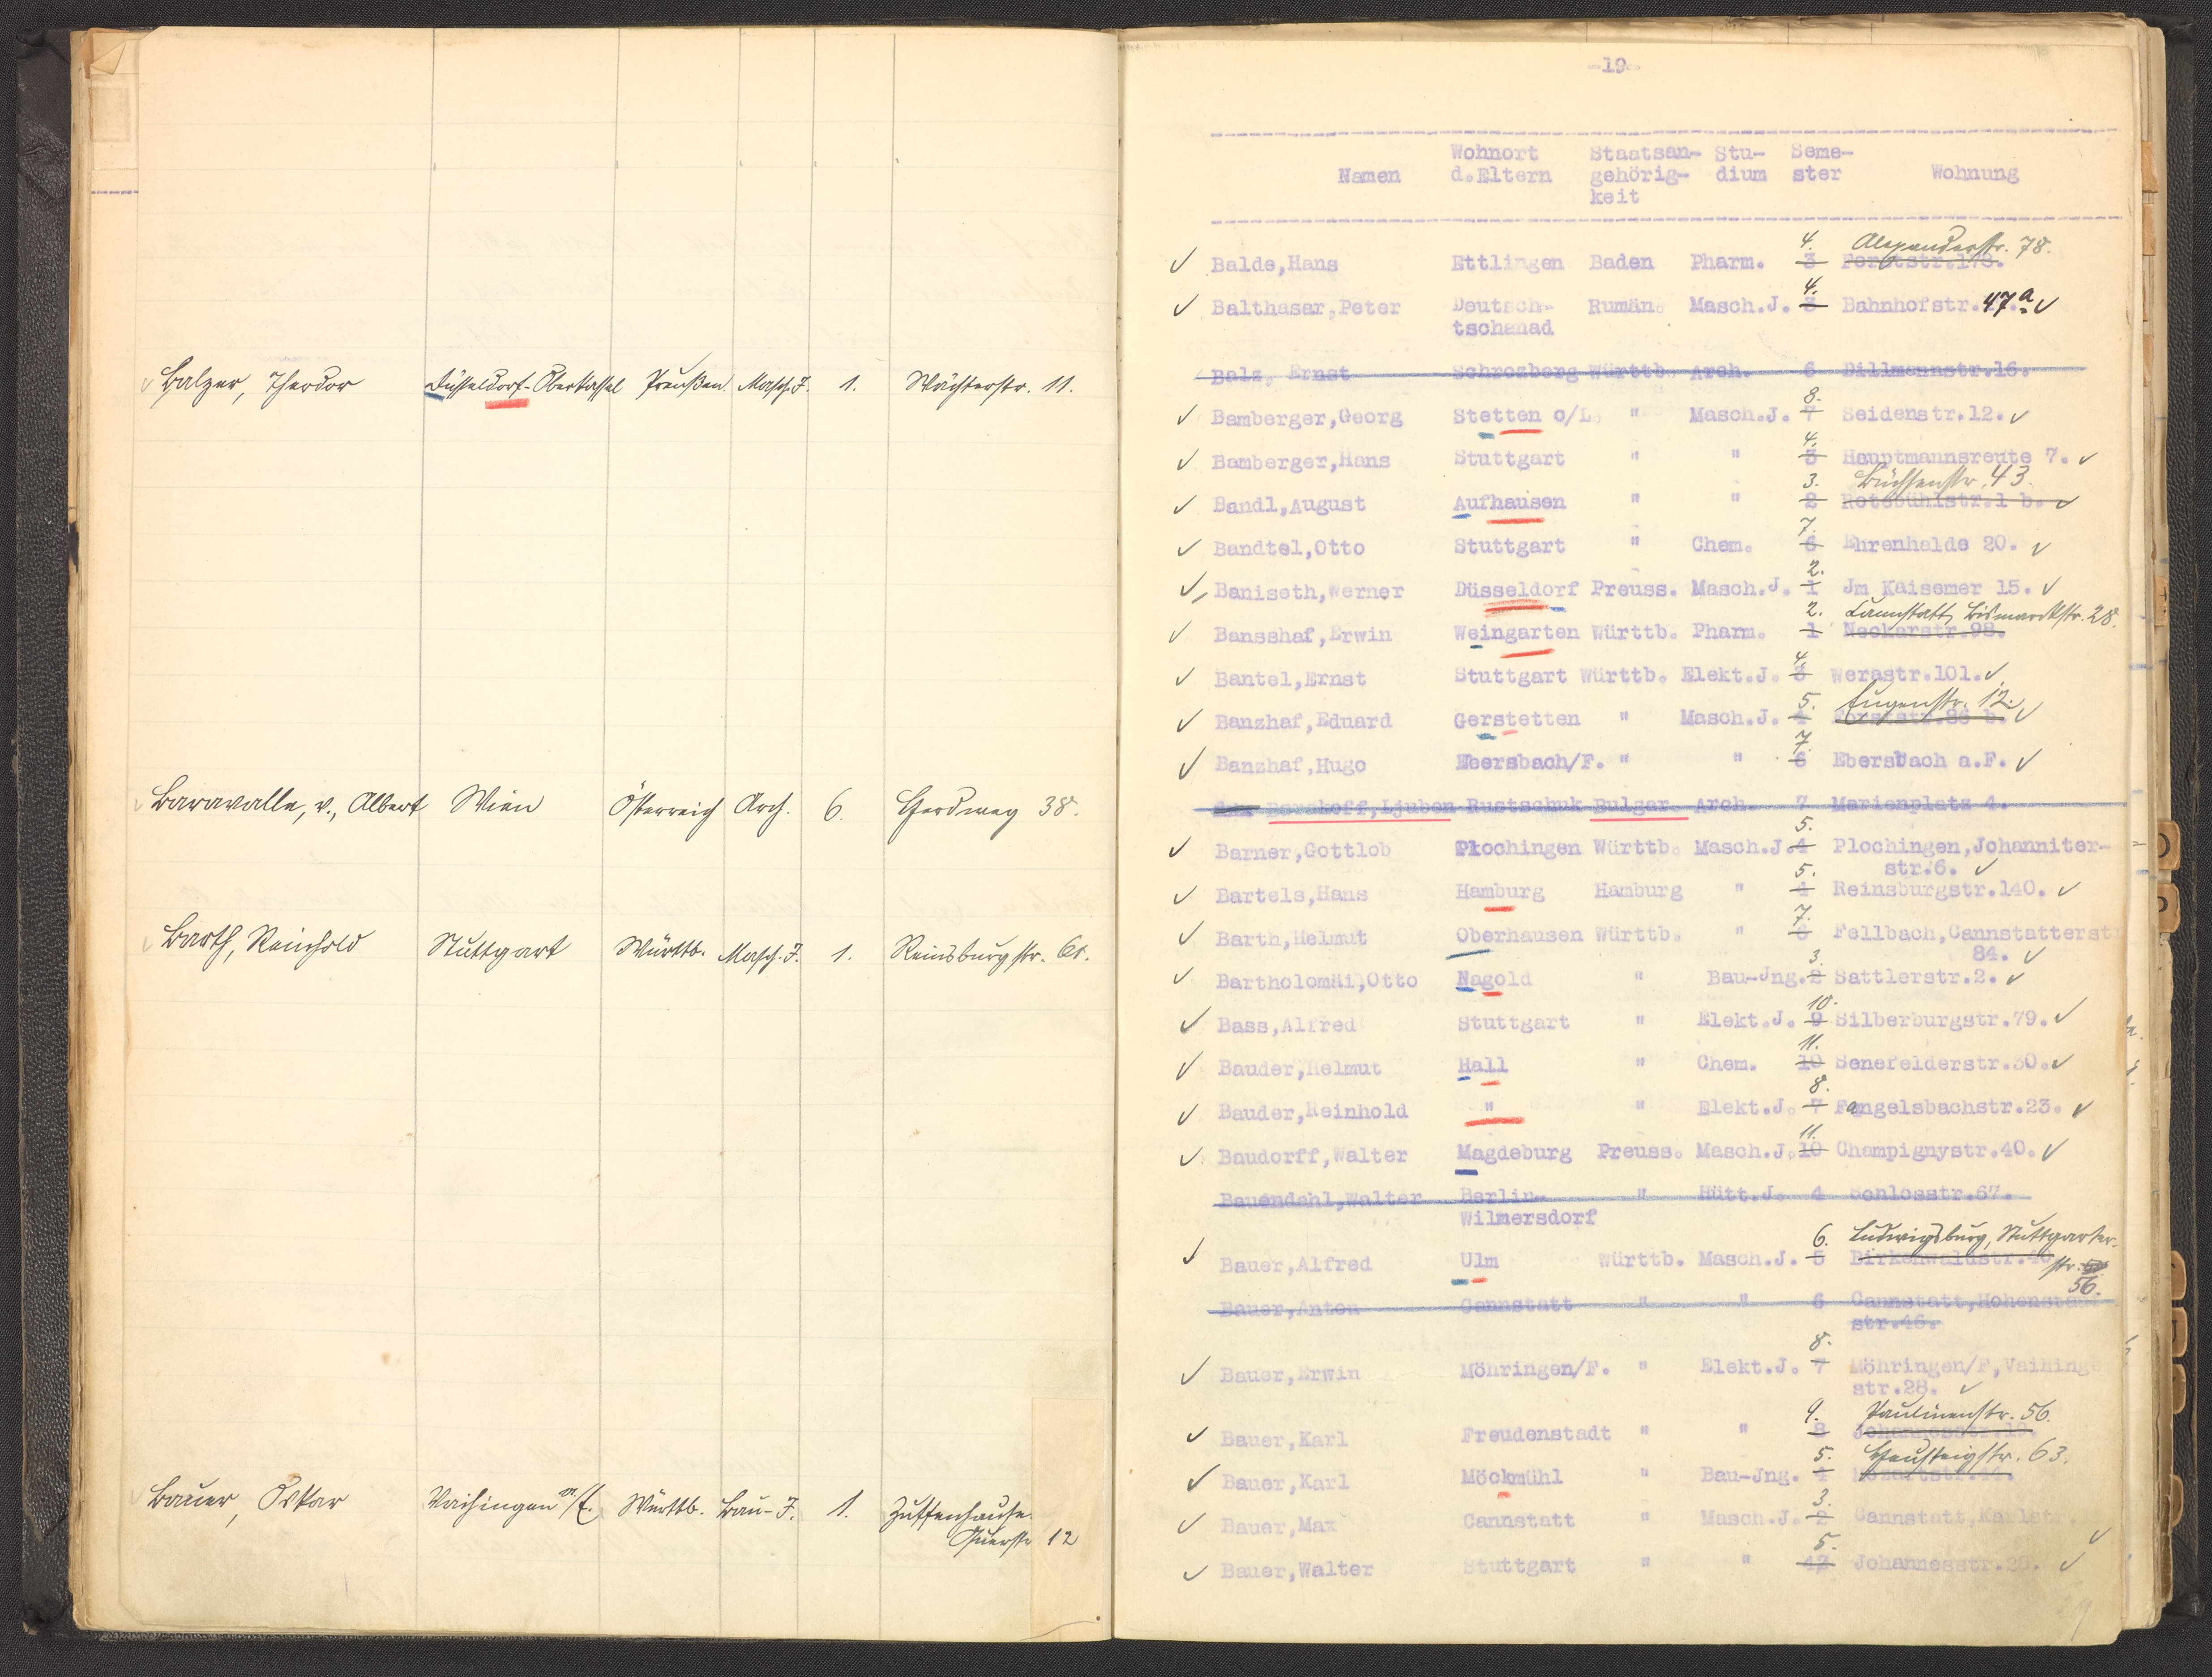 Balzer, Theodor Düsseldorf-Oberkassel Preußen. Masch. J. 1. Wächterstr. 11.
Baravalle, v., Albert Wien Österreich Arch. 6. Herdweg 38.
Barth, Reinhold Stuttgart Württb. Masch. J. 1. Reinsburgstr.
Bauer, Oskar Vaihingen Württb. Bau-J. 1. Zuffenhause
12
-19-
Wohnort Staatsan- Stu- Seme-
Namen d.Eltern gehörig- dium ster Wohnung
keit
4. Alexanderstr. 78.
Balde,Hans Ettlingen Baden Pharm. 3
4.
Balthasar,Peter Deutsch- Rumän. Masch.J. 3 Bahnhofstr. 47a
tschanad
Balz, Ernst Schrozberg Württb. Arch. 6 Dillmannstr.16.
8.
Bamberger,Georg Stetten o/L. " Masch.J. 7 Seidenstr.12.
4.
Bamberger,Hans Stuttgart " " 3 Hauptmannsreute 7.
3. Büchsenstr. 43.
Bandl,August Aufhausen " " 2 Rotebühlstr.1 b.
7.
Bandtel,Otto Stuttgart " Chem. 6 Ehrenhalde 20.
2.
Baniseth,Werner Düsseldorf Preuss. Masch.J. 1 Jm Kaisemer 15.
2. Cannstatt, Bismarckstr. 28.
Bansshaf,Erwin Weingarten Württb. Pharm. 1 Neckarstr.98.
4.
Bantel,Ernst Stuttgart Württb. Elekt.J. 3 Werastr.101.
5. Eugenstr. 12.
Banzhaf,Eduard Gerstetten " Masch.J. 4 Forststr.86 b.
7.
Banzhaf,Hugo Ebersbach/F. " " 6 Ebersbach a.F.
Barakoff,Ljuben Rustschuk Bulgar. Arch. 7 Marienplatz 4.
5.
Barner,Gottlob Plochingen Württb. Masch.J. 4 Plochingen,Johanniter-
str.6.
5.
Bartels,Hans Hamburg Hamburg " 4 Reinsburgstr.140.
7.
Barth,Helmut Oberhausen Württb. " 6 Fellbach,Cannstatterstr
84.
3.
Bartholomäi,Otto Nagold " Bau-Jng. 2 Sattlerstr.2.
10.
Bass,Alfred Stuttgart " Elekt.J. 9 Silberburgstr.79.
11.
Bauder,Helmut Hall " Chem. 10 Senefelderstr.30.
8.
Bauder,Reinhold " " Elekt.J. 7 Fangelsbachstr.23.
11.
Baudorff,Walter Magdeburg Preuss. Masch.J. 10 Champignystr.40.
Bauendahl,Walter Berlin- " Hütt.J. 4 Schlosstr.67.
Wilmersdorf
6. Ludwigsburg, Stuttgarter-
Bauer,Alfred Ulm Württb. Masch.J. 5 Birkenwaldstr. str.
56.
Bauer,Anton Cannstatt " " 6 Cannstatt,Hohenstau
str.46.
8.
Bauer,Erwin Möhringen/F. " Elekt.J. 7 Möhringen/F,Vaihinge
str.28.
9. Paulinenstr. 56.
Bauer,Karl Freudenstadt " " 8 Johannesstr.
5. Hausteigstr. 63.
Bauer,Karl Möckmühl " Bau-Jng. 4 Mozartstr.
3.
Bauer,Max Cannstatt " Masch.J. 2 Cannstatt,Karlstr.
5.
Bauer,Walter Stuttgart " " Johannesstr.